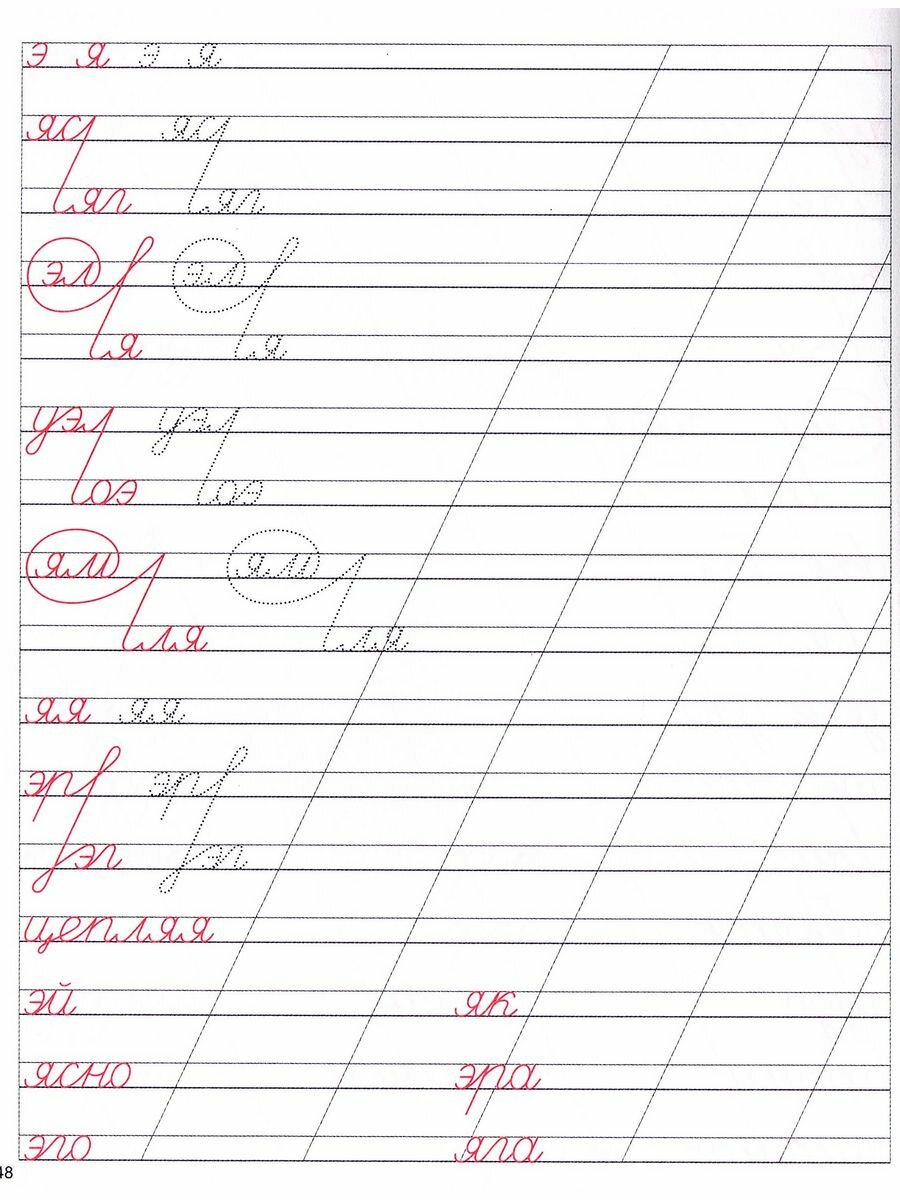 э я э я
яс яс
яг яг
эл эл
я я
уэл уэл
оэ оэ
ям ям
ля ля
яя яя
эр эр
эг эг
цепляя
эй як
ясно эра
эго яга
48